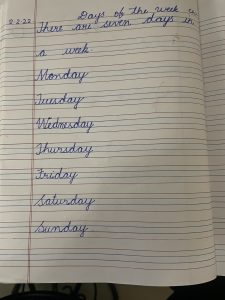 Days of the week
2.2.22 There are seven days in
a week.
Monday
Tuesday
Wednesday
Thursday
Friday
Saturday
Sunday